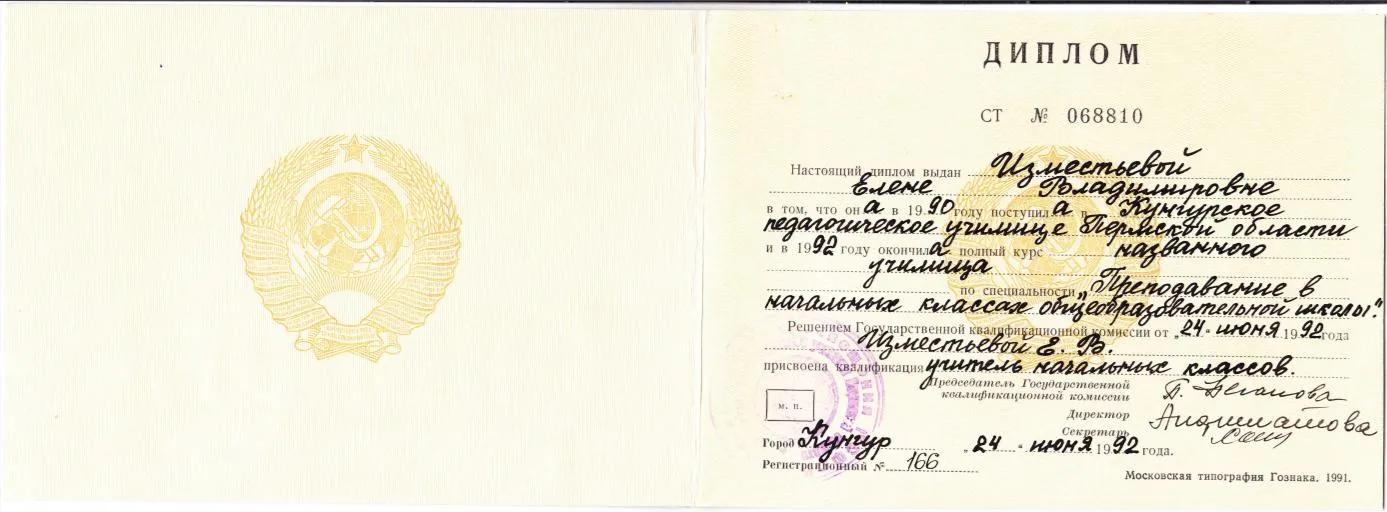 ДИПЛОМ
СТ № 068810
Настоящий диплом выдан Изместьевой
Елене Владимировне
в том, что она в 1990 году поступила в Кунгурское
педагогическое училище Пермской области
и в 1992 году окончила полный курс названного
училища
по специальности „Преподавание в
начальных классах общеобразовательной школы".
Решением Государственной квалификационной комиссии от „24" июня 1992 года
Изместьевой Е. В.
присвоена квалификация учитель начальных классов.
Председатель Государственной
квалификационной комиссии
Директор
Секретарь
м. п.
Город Кунгур „24" июня 1992 года.
Регистрационный № 166
Московская типография Гознака. 1991.